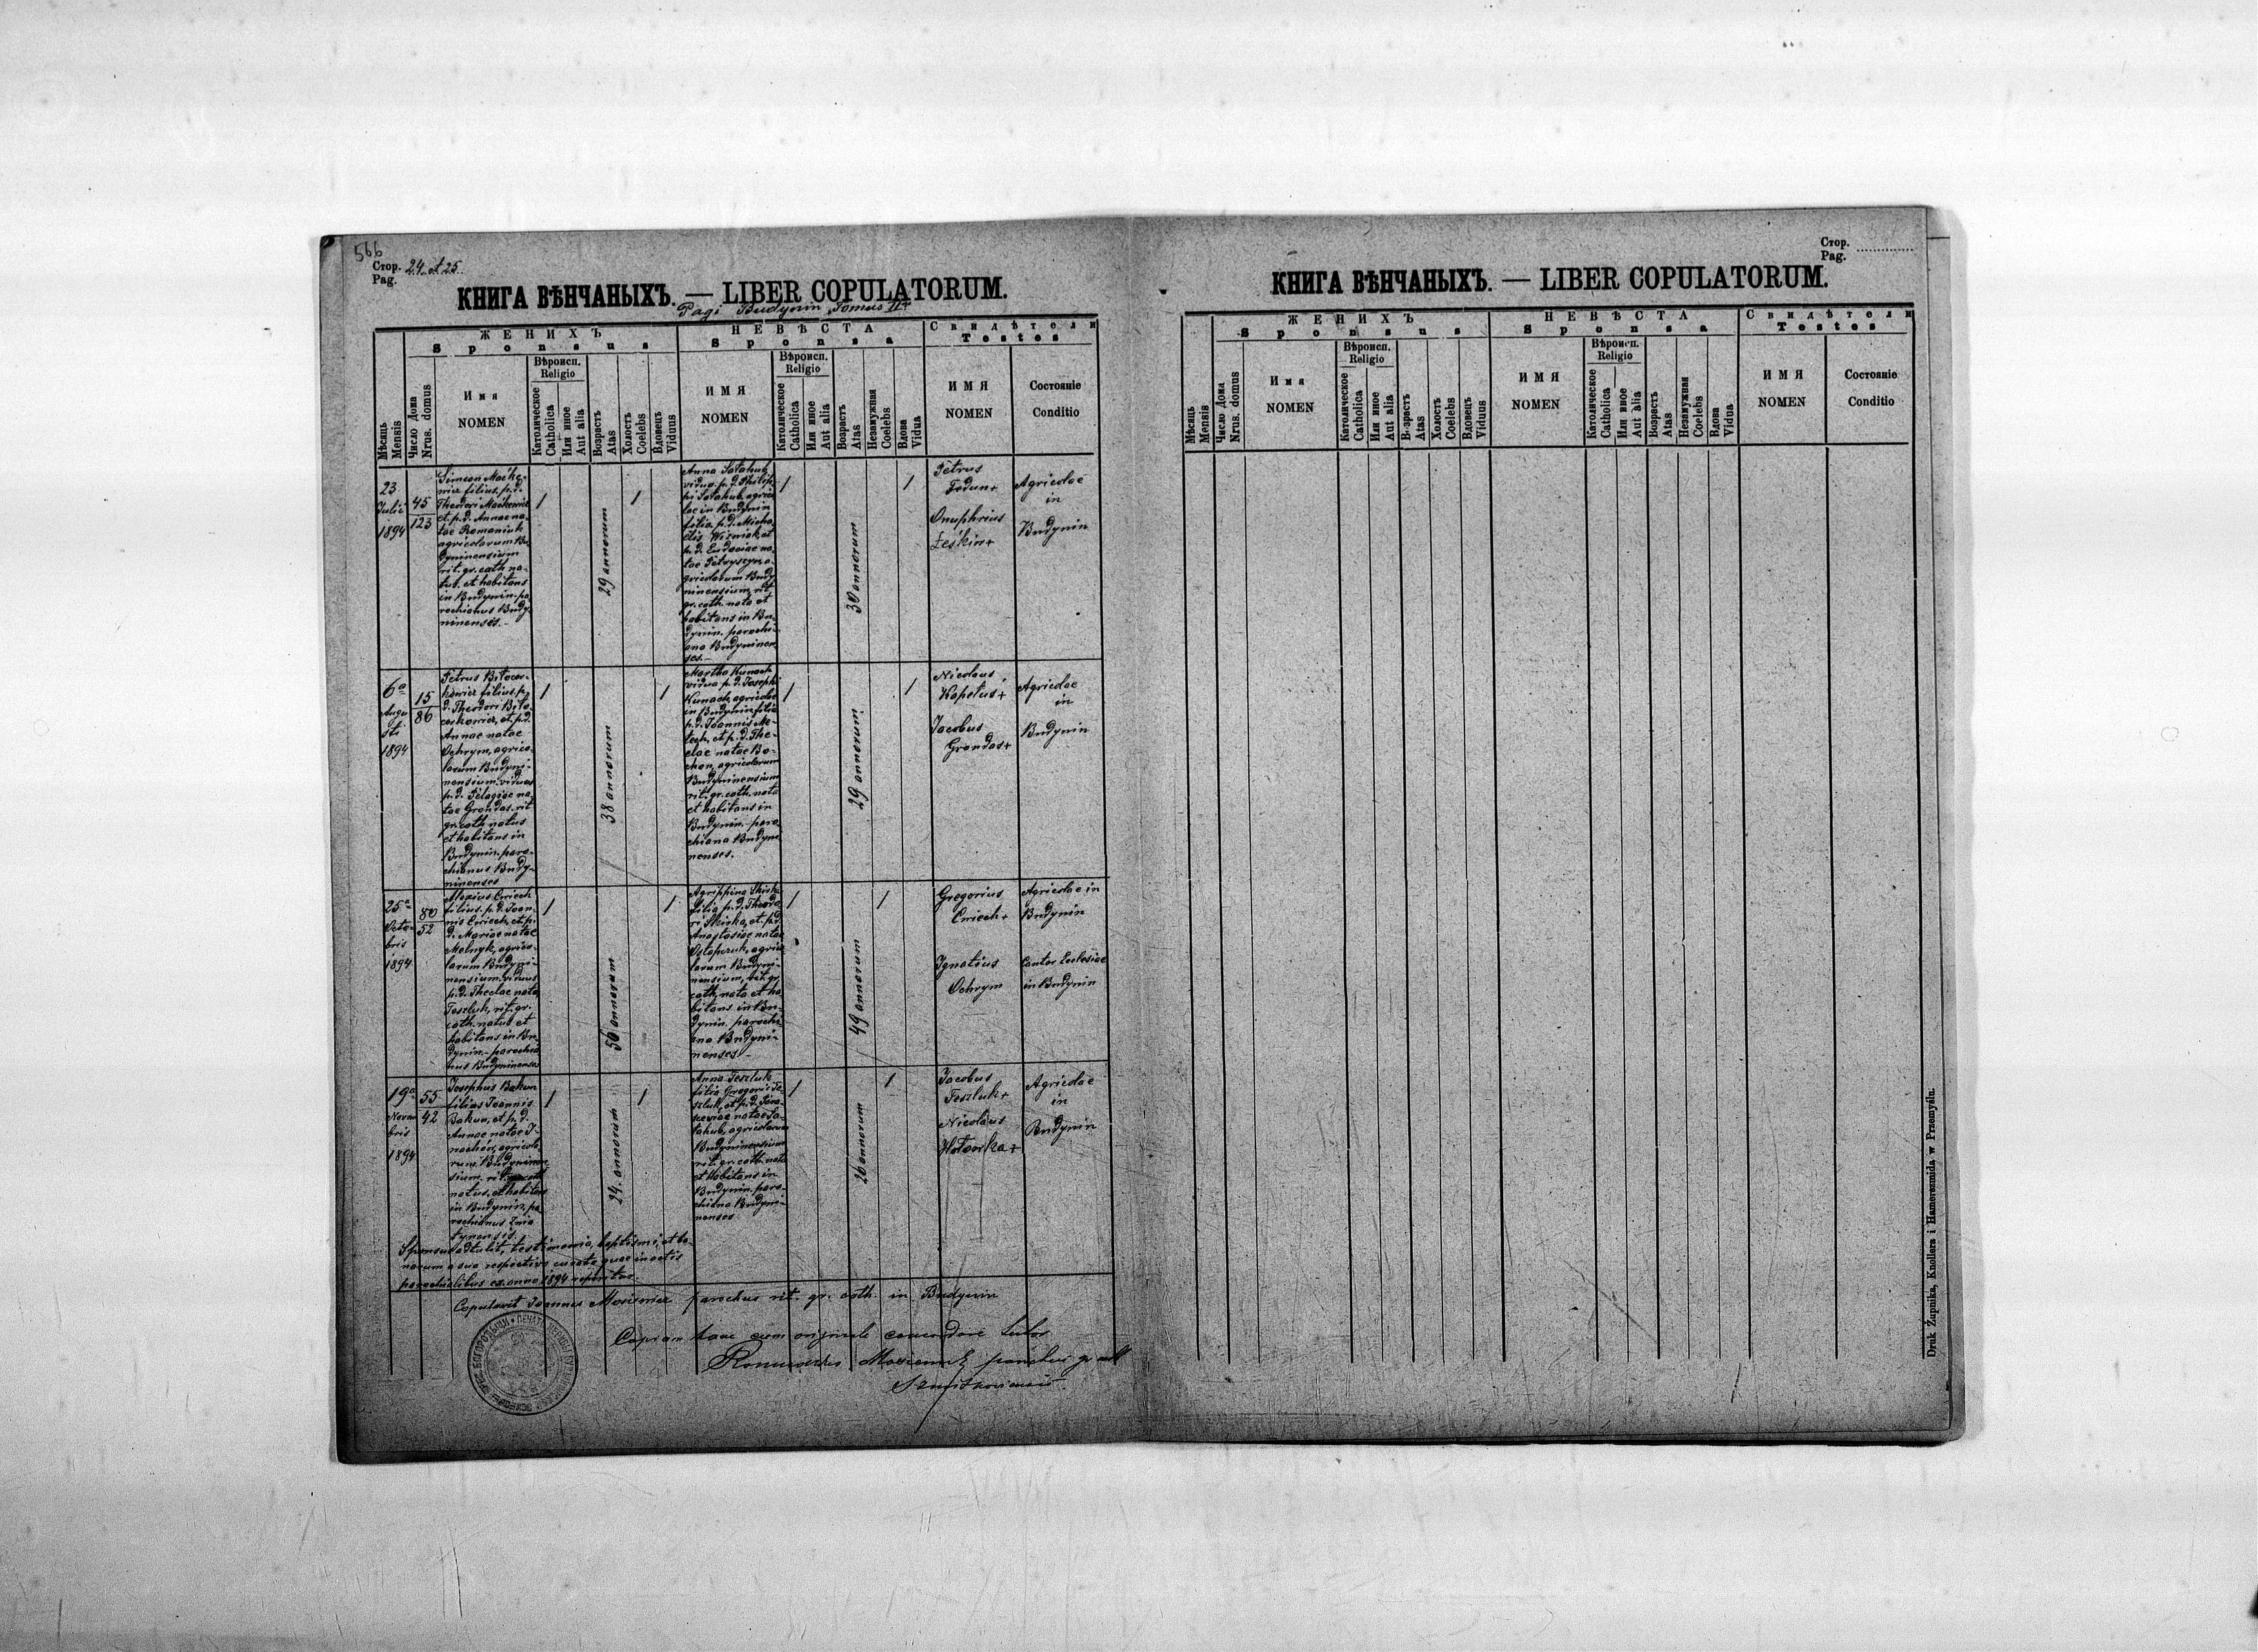 566
Стор. 24 et 25.
Pag.
КНИГА ВѢНЧАНЫХЪ. — LIBER COPULATORUM.
Pagi Budynin Tomus
ЖЕНИХЪ
Sponsus
НЕВѢСТА
Sponsa
Свидѣтели
Testes
Мѣсяць
Mensis
Число Дома
Nrus. domus
Имя
NOMEN
Вѣроисп.
Religio
Католическое
Catholica
Или иное
Aut alia
Возрастъ
Ætas
Холостъ
Coelebs
Вдовецъ
Viduus
ИМЯ
NOMEN
Вѣроисп.
Religio
Католическое
Catholica
Или иное
Aut alia
Возрастъ
Atas
Незамужная
Coelebs
Вдова
Vidua
ИМЯ
NOMEN
Состояніе
Conditio
23
Julii
1894
45
123
Simeon
filius p. d.
Theodori
et p. d. Annae na-
tae Romaniuk
agricolarum Bu-
dyninensium
rit. gr. cath. na-
tus et habitans
in Budynin pa-
rochianus Budy-
ninensis.-
1
29 annorum
1
Anna
vidua p. d. Philip-
pi agrico-
lae in Budynin
filia p. d. Micha-
elis et
p. d. Eudociae na-
tae a-
gricolarum Budy-
ninensium, rit.
gr. cath. nata et
habitans in Bu-
dynin. parochi-
ana Budyninen-
ses.-
1
30 annorum
1
Petrus
Fedun +
Onuphrius
Agricolae
in
Budynin
6a
Augu
sti
1894
15
86
Petrus
filius p.
d. Theodori
et p. d.
Annae natae
Ochrym, agrico-
larum Budyni-
nensium, viduus
p. d. Pelagiae na-
tae Grondas. rit
gr. cath. natus
et habitans in
Budynin. paro-
chianus Budy-
ninenses
1
38 annorum
1
Martha Kunach
vidua p. d. Josephi
Kunach, agricolae
in Budynin filia
p. d. Joannis
et p. d. The-
clae natae
agricolarum
Budyninensium
rit. gr. cath. nata
et habitans in
Budynin.- paro-
chiana Budyni-
nenses.
1
29 annorum
1
Nicolaus
Kapetus +
Jacobus
Grondas +
Agricolae
in
Budynin
25a
Octo-
bris
1894
80
52
Alexius
filius p. d. Joan-
nis et p.
d. Mariae natae
Melnyk, agrico-
larum Budyni-
nensium, viduus
p. d. Theclae nata
Teszluk, rit. gr.
cath. natus et
habitans in Bu-
dynin.- parochia
nus Budyninenses
1
56 annorum
1
Agrippina
filia p. d. Theodo-
ri et p. d.
Anastasiae natae
Ostapczuk, agrico
larum Budyni-
nensium, rit. gr.
cath. nata et ha
bitans in Bu-
dynin. parochi
ana Budyni-
nenses.-
1
49 annorum
1
Gregorius
Ignatius
Ochrym
Agricolae in
Budynin
Cantor Ecclesiae
in Budynin
19a
Novem
bris
1894
55
42
Josephus Bakun
filius Joannis
Bakun, et p. d.
Annae natae
agricola-
rum Budyninen-
sium, rit.
natus, et habitans
in Budynin, pa-
rochianus
1
24. annorum
1
Anna Teszluk
filia Gregorii Te-
szluk, et p. d. Para-
sceviae natae
agricolarum
Budyninensium
rit. gr. cath. nata
et habitans in
Budynin. paro-
chiana Budyni-
nenses
1
26 annorum
1
Jacobus
Teszluk +
Nicolaus
Agricolae
in
Budynin
Sponsus adtulit, testimonia, baptismi, et ba-
norum a suo respectivo curato, quae in actis
parochialibus ex anno 1894
Copulavit Joannes parochus rit. gr. cath. in Budynin
Copiam hanc cum originale
Romualdus parochus gr. cath
Стор.
Pag.
КНИГА ВѢНЧАНЫХЪ. — LIBER COPULATORUM.
ЖЕНИХЪ
Sponsus
НЕВѢСТА
Sponsa
Свидѣтели
Testes
Мѣсяць
Mensis
Число Дома
Nrus. domus
Имя
NOMEN
Вѣроисп.
Religio
Католическое
Catholica
Или иное
Aut alia
В-зрастъ
Atas
Холостъ
Coelebs
Вдовецъ
Viduus
ИМЯ
NOMEN
Вѣроисп.
Religio
Католическое
Catholica
Или иное
Aut alia
Возрастъ
Atas
Незамужная
Coelebs
Вдова
Vidua
ИМЯ
NOMEN
Состояніе
Conditio
Druk Żupnika, Knollera i Hamerszmida w Przemyślu.